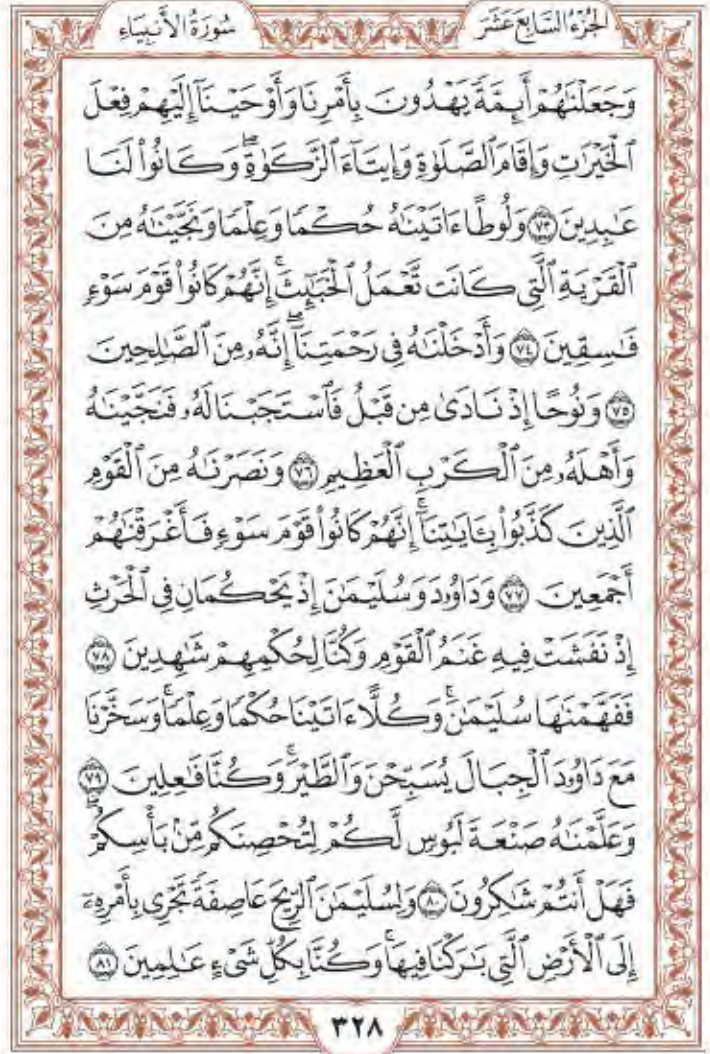 الجُزْءُ السَّابِعَ عَشَرَ
سُورَةُ الأَنبِيَاءِ
وَجَعَلْنَٰهُمْ أَئِمَّةً يَهْدُونَ بِأَمْرِنَا وَأَوْحَيْنَآ إِلَيْهِمْ فِعْلَ
ٱلْخَيْرَٰتِ وَإِقَامَ ٱلصَّلَوٰةِ وَإِيتَآءَ ٱلزَّكَوٰةِۖ وَكَانُوا۟ لَنَا
عَٰبِدِينَ ﴿٧٣﴾ وَلُوطًا ءَاتَيْنَٰهُ حُكْمًا وَعِلْمًا وَنَجَّيْنَٰهُ مِنَ
ٱلْقَرْيَةِ ٱلَّتِى كَانَت تَّعْمَلُ ٱلْخَبَٰٓئِثَۗ إِنَّهُمْ كَانُوا۟ قَوْمَ سَوْءٍ
فَٰسِقِينَ ﴿٧٤﴾ وَأَدْخَلْنَٰهُ فِى رَحْمَتِنَآۖ إِنَّهُۥ مِنَ ٱلصَّٰلِحِينَ
﴿٧٥﴾ وَنُوحًا إِذْ نَادَىٰ مِن قَبْلُ فَٱسْتَجَبْنَا لَهُۥ فَنَجَّيْنَٰهُ
وَأَهْلَهُۥ مِنَ ٱلْكَرْبِ ٱلْعَظِيمِ ﴿٧٦﴾ وَنَصَرْنَٰهُ مِنَ ٱلْقَوْمِ
ٱلَّذِينَ كَذَّبُوا۟ بِـَٔايَٰتِنَآۚ إِنَّهُمْ كَانُوا۟ قَوْمَ سَوْءٍ فَأَغْرَقْنَٰهُمْ
أَجْمَعِينَ ﴿٧٧﴾ وَدَاوُۥدَ وَسُلَيْمَٰنَ إِذْ يَحْكُمَانِ فِى ٱلْحَرْثِ
إِذْ نَفَشَتْ فِيهِ غَنَمُ ٱلْقَوْمِ وَكُنَّا لِحُكْمِهِمْ شَٰهِدِينَ ﴿٧٨﴾
فَفَهَّمْنَٰهَا سُلَيْمَٰنَۚ وَكُلًّا ءَاتَيْنَا حُكْمًا وَعِلْمًاۚ وَسَخَّرْنَا
مَعَ دَاوُۥدَ ٱلْجِبَالَ يُسَبِّحْنَ وَٱلطَّيْرَۚ وَكُنَّا فَٰعِلِينَ ﴿٧٩﴾
وَعَلَّمْنَٰهُ صَنْعَةَ لَبُوسٍ لَّكُمْ لِتُحْصِنَكُم مِّنۢ بَأْسِكُمْۖ
فَهَلْ أَنتُمْ شَٰكِرُونَ ﴿٨٠﴾ وَلِسُلَيْمَٰنَ ٱلرِّيحَ عَاصِفَةً تَجْرِى بِأَمْرِهِۦٓ
إِلَى ٱلْأَرْضِ ٱلَّتِى بَٰرَكْنَا فِيهَاۚ وَكُنَّا بِكُلِّ شَىْءٍ عَٰلِمِينَ ﴿٨١﴾
٣٢٨